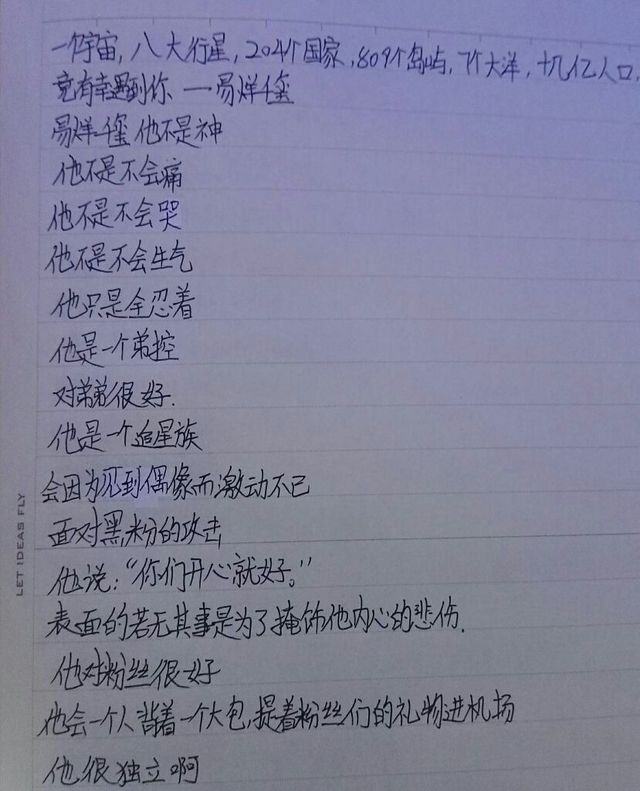 一个宇宙,八大行星,204个国家,809个岛屿,7个大洋,十几亿人口,
竟有幸遇到你 一易烊千玺
易烊千玺 他不是神
他不是不会痛
他不是不会哭
他不是不会生气
他只是全忍着
他是一个弟控
对弟弟很好.
他是一个追星族
会因为见到偶像而激动不已
面对黑粉的攻击
他说:“你们开心就好。”
表面的若无其事是为了掩饰他内心的悲伤.
他对粉丝很好
他会一个人背着一个大包,提着粉丝们的礼物进机场
他很独立啊
LET IDEAS FLY